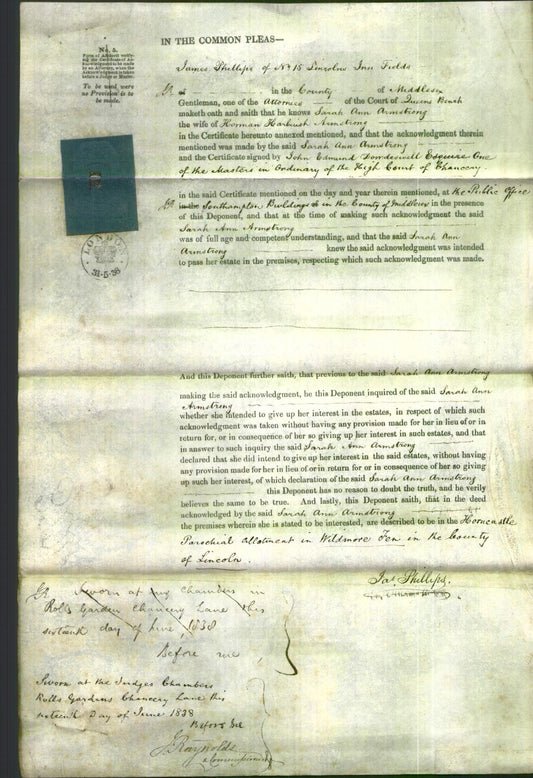 IN THE COMMON PLEAS—
No. 5.
Form of Affidavit verifying the Certificate of Acknowledgment to be made by an Attorney, when the Acknowledgment is taken before a Judge or Master.
To be used were no Provision is to be made.
LONDON
31-5-38
James Phillips of No 15 Lincolns Inn Fields
in the County of Middlesex
Gentleman, one of the Attornies of the Court of Queens Bench
maketh oath and saith that he knows Sarah Ann Armstrong
the wife of Armstrong
in the Certificate hereunto annexed mentioned, and that the acknowledgment therein
mentioned was made by the said Sarah Ann Armstrong
and the Certificate signed by John Edmund Dowdeswell Esquire One
of the Masters in Ordinary of the High Court of Chancery
in the said Certificate mentioned on the day and year therein mentioned, at the Public Office
Southampton Buildings in the County of Middlesex in the presence
of this Deponent, and that at the time of making such acknowledgment the said
Sarah Ann Armstrong
was of full age and competent understanding, and that the said Sarah Ann
Armstrong knew the said acknowledgment was intended
to pass her estate in the premises, respecting which such acknowledgment was made.
And this Deponent further saith, that previous to the said Sarah Ann Armstrong
making the said acknowledgment, he this Deponent inquired of the said Sarah Ann
Armstrong
whether she intended to give up her interest in the estates, in respect of which such
acknowledgment was taken without having any provision made for her in lieu of or in
return for, or in consequence of her so giving up her interest in such estates, and that
in answer to such inquiry the said Sarah Ann Armstrong
declared that she did intend to give up her interest in the said estates, without having
any provision made for her in lieu of or in return for or in consequence of her so giving
up such her interest, of which declaration of the said Sarah Ann Armstrong
this Deponent has no reason to doubt the truth, and he verily
believes the same to be true. And lastly, this Deponent saith, that in the deed
acknowledged by the said Sarah Ann Armstrong
the premises wherein she is stated to be interested, are described to be in the Horncastle
Parochial Allotment in Wildmore Fen in the County
of Lincoln.
Jas. Phillips.
Sworn at my Chambers in
Rolls Garden Chancery Lane this
sixteenth day of June, 1838
Before me,
Sworn at the Judges Chambers
Rolls Gardens Chancery Lane this
sixteenth Day of June 1838
Before me
J Raynolds
a Commissioner